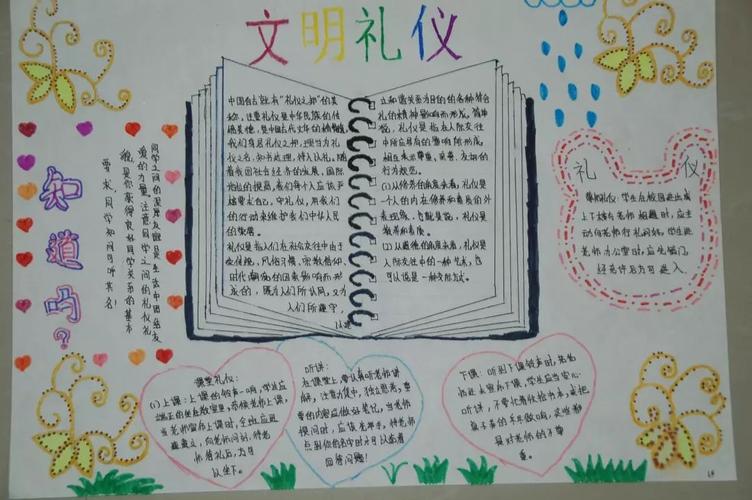 文明礼仪
中国自古就有“礼仪之邦”的美
称，注重礼仪是中华民族的传
统美德，是中国古代文明的精髓
我们身居礼仪之邦，理当为礼
仪之名，知书达理，待人以礼。随
着我国社会经济的发展，国际
地位的提高，我们每个人应该严
格要求自己，守礼仪，用我们
的行动来维护我们中华人民
的荣誉。
礼仪是指人们在社会交往中由于
受传统，风俗习惯，宗教信仰，
时代潮流的因素影响而形
成的，既为人们所认同，又为
人们所遵守，
以建
立和谐关系为目的的各种符合
礼的精神影响而形成。简单
说，礼仪是指在人际交往
中所应具有的
相互表示尊重，亲善，友好的
行为规范。
(1)从修养的角度来看，礼仪是
一个人的内在修养和素质的外
表现像，也就是说，礼仪是
教养和素质。
(2)从道德的角度来看，礼仪是
人际交往中的一种艺术，也
可以说是一种交际方式。
知道吗？
同学之间的深厚友谊是生活中团结友
爱的力量。注意同学之间的礼仪礼
貌，是你获得良好同学关系的基本
要求，同学知间可呼其名！
礼仪
学生在校园进出或
上下楼与老师相遇时，应主
动向老师行礼问好。学生进
老师办公室时，应先敲门，
经允许后方可进入
课堂礼仪：
(1)上课：上课的铃声一响，学生应
端正的坐在教室里，恭候老师上课，
当老师宣布上课时，全班应迅
速起立，向老师问好，待老
师答礼后，方可
以坐下。
听讲：
在课堂上，要认真听老师讲
解，注意力集中，独立思考，重
要的内容应做好笔记，当老师
提问时，应该先举手，待老师
点到你的名字时才可以站着
回答问题！
下课：听到下课铃声时，若老
师还未宣布下课，学生应当安心
听讲，不要忙着收拾书本，或把
桌子弄的乒乓做响，这是都
是对老师的不尊
重。